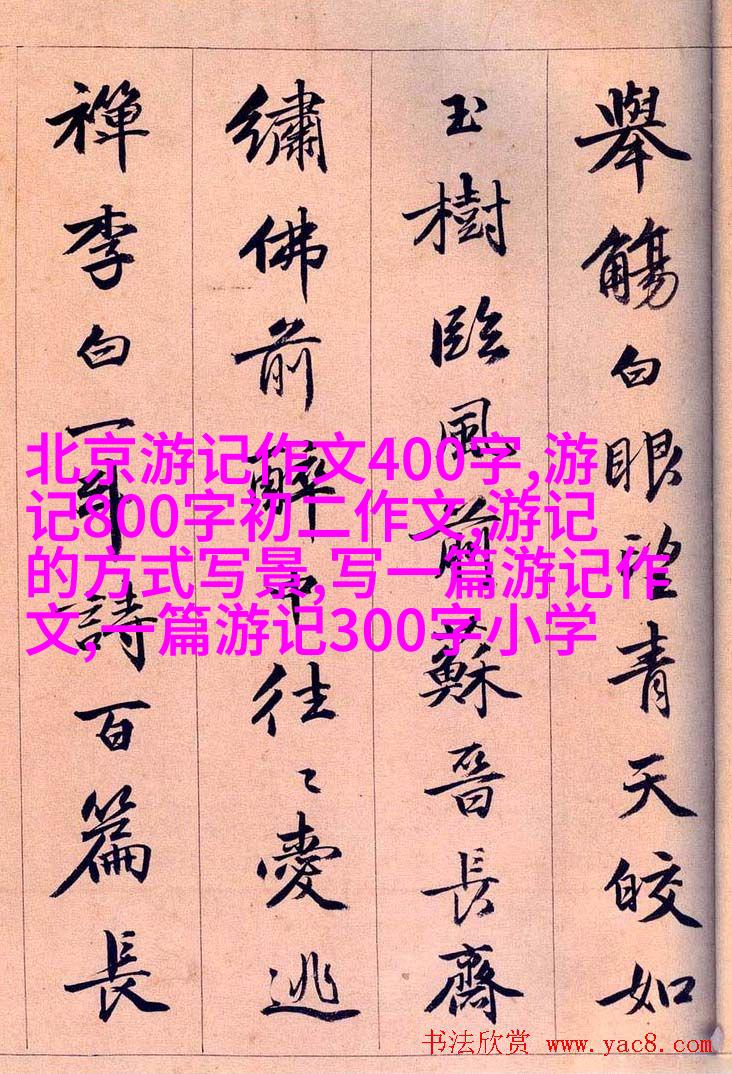 舉觴白眼望青天皎如
玉樹臨風前蘇晉長齋
繡佛前醉中往〻愛逃
禪李白一斗詩百篇長
北京游记作文400字,游
记800字初二作文,游记
的方式写景,写一篇游记作
文,一篇游记300字小学
书法欣赏 www.yac8.com